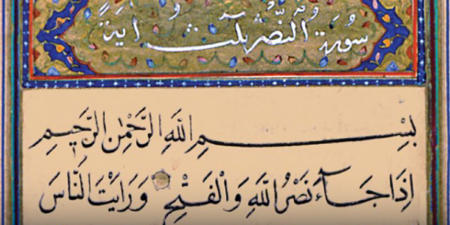 سورة النصر ثلث اية
بسم الله الرحمن الرحيم
اذا جاء نصر الله والفتح ورايت الناس